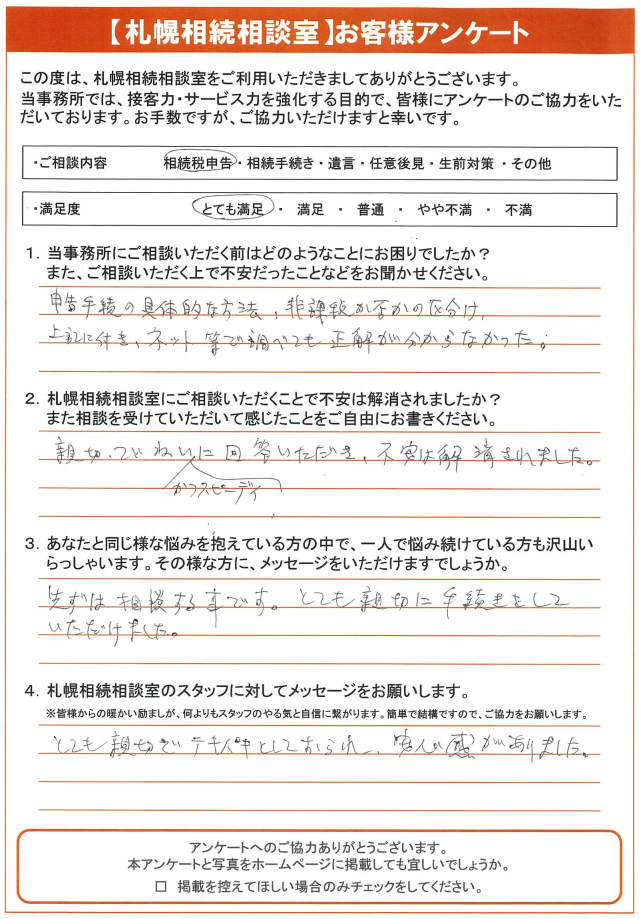 【札幌相続相談室】お客様アンケート
この度は、札幌相続相談室をご利用いただきましてありがとうございます。
当事務所では、接客力・サービス力を強化する目的で、皆様にアンケートのご協力をいた
だいております。お手数ですが、ご協力いただけますと幸いです。
・ご相談内容　相続税申告・相続手続き・遺言・任意後見・生前対策・その他
・満足度　とても満足　・　満足　・　普通　・　やや不満　・　不満
1．当事務所にご相談いただく前はどのようなことにお困りでしたか？
また、ご相談いただく上で不安だったことなどをお聞かせください。
申告手続の具体的な方法、非課税か否かの区分け、
上記に付き、ネット等で調べても正解が分からなかった。
2．札幌相続相談室にご相談いただくことで不安は解消されましたか？
また相談を受けていただいて感じたことをご自由にお書きください。
親切、ていねいに回答いただき、不安は解消されました。
かつスピーディ
3．あなたと同じ様な悩みを抱えている方の中で、一人で悩み続けている方も沢山い
らっしゃいます。その様な方に、メッセージをいただけますでしょうか。
先ずは相談する事です。とても親切に手続きをして
いただけました。
4．札幌相続相談室のスタッフに対してメッセージをお願いします。
※皆様からの暖かい励ましが、何よりもスタッフのやる気と自信に繋がります。簡単で結構ですので、ご協力をお願いします。
とても親切でテキパキとしておられ、安心感がありました。
アンケートへのご協力ありがとうございます。
本アンケートと写真をホームページに掲載しても宜しいでしょうか。
□　掲載を控えてほしい場合のみチェックをしてください。